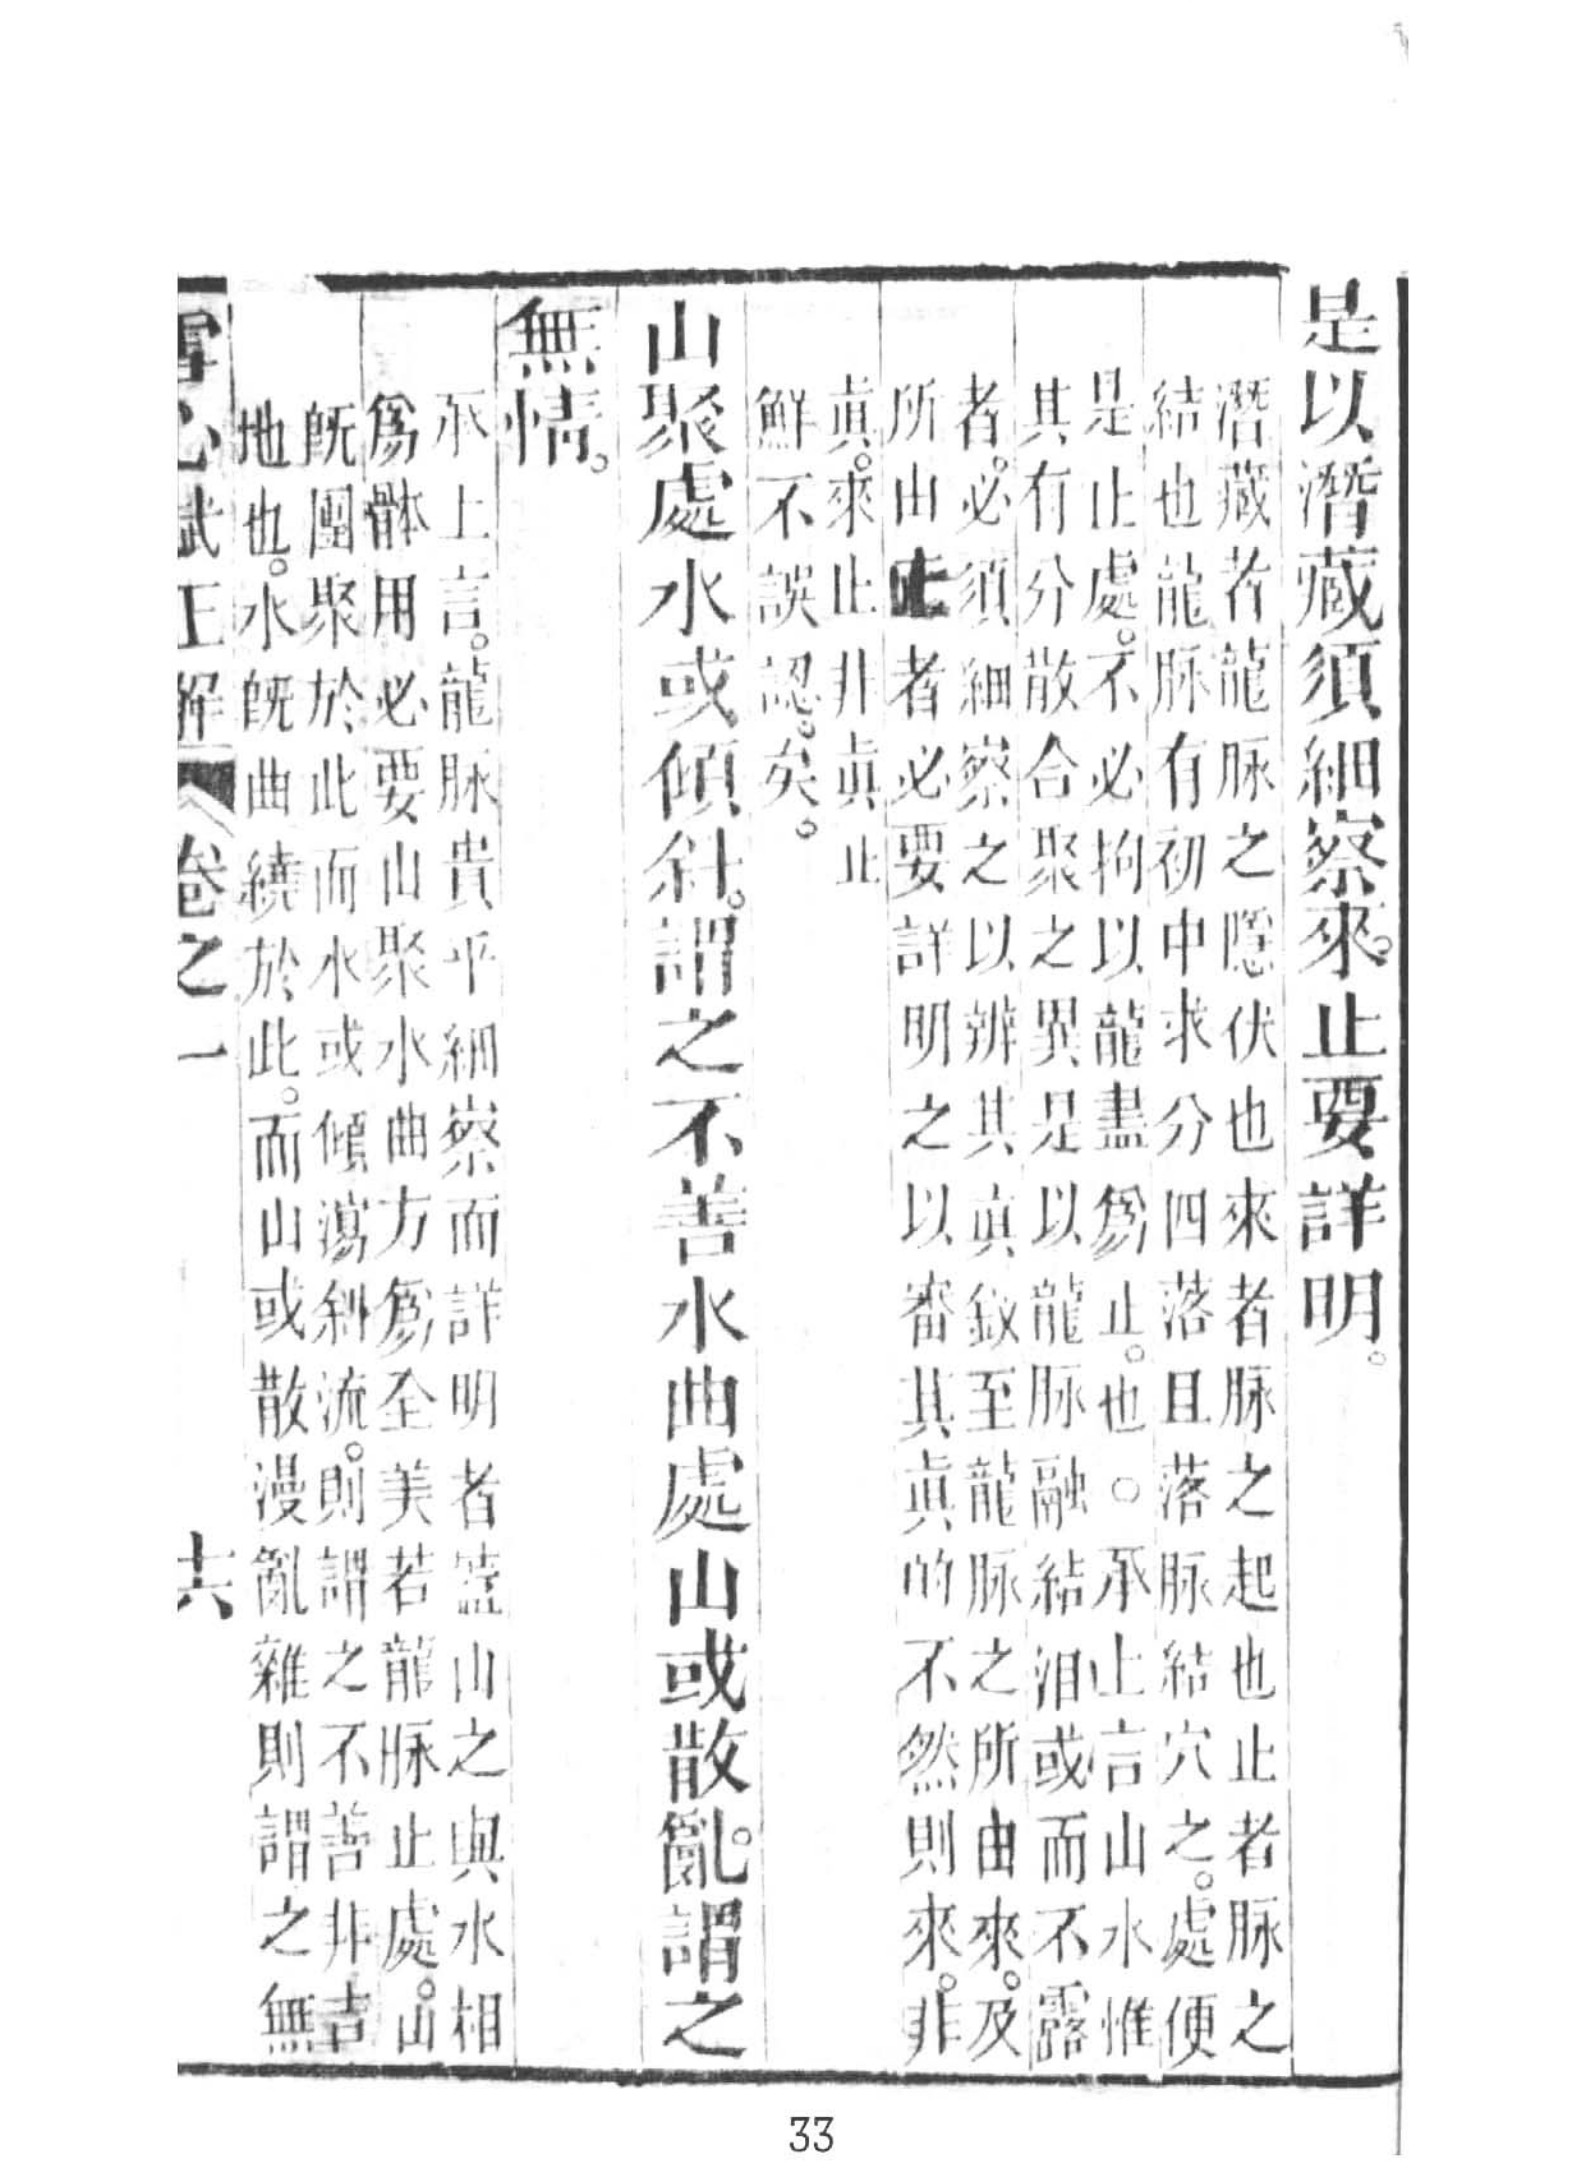 是以潛藏須細察。來止要詳明。
潛藏者龍脉之隱伏也來者脉之起也止者脉之
結也龍脉有初中求分四落且落脉結穴之。處便
是止處。不必拘以龍盡爲止。也○承上言山水惟
其有分散合聚之異是以龍脉融結泪或而不露
者。必須細察之以辨其真欵至龍脉之所由來。及
所由止者必要詳明之以審其眞眞的不然則來。非
眞。來止非眞止
鮮不誤認。矣。
山聚處水或傾斜。謂之不善水曲處山或散亂。謂之
無情。
承上言。龍脉貴乎細察而詳明者葢山之與水相
爲體用必要山聚水曲方爲全美若龍脉止處。山
旣團聚於此而水或傾瀉斜流。則謂之不善非吉
地也。水旣曲繞於此。而山或散漫亂雜則謂之無
雪心賦正解 卷之一 十六
33